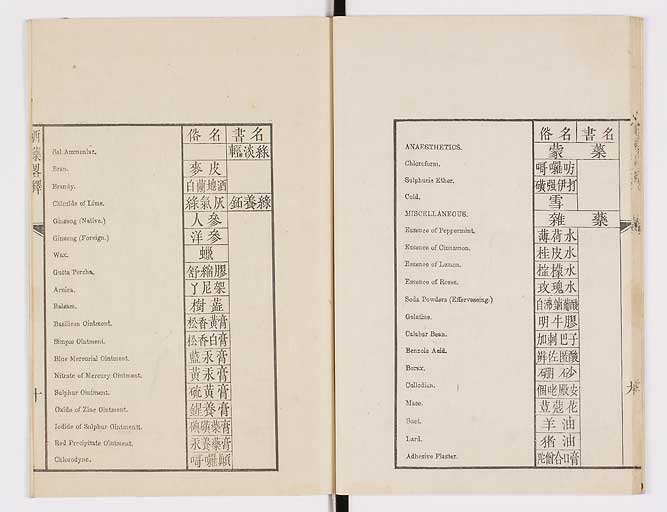 名書 名俗
ANAESTHETICS. 蒙藥
Chloroform. 哥囉吩
Sulphuric Ether. 磺强伊打
Cold. 雪
MISCELLANEOUS. 雜藥
Essence of Peppermint. 薄荷水
Essence of Cinnamon. 桂皮水
Essence of Lemon. 檬水
Essence of Roses. 玫瑰水
Soda Powders (Effervescing.)
Gelatine. 明牛膠
Calabar Bean. 加剌巴子
Benzoic Acid.
Borax. 硼砂
Collodion.
Mace. 荳蔻花
Suet. 羊油
Lard. 猪油
Adhesive Plaster.
名書 名俗
Sal Ammoniac.
Bran. 麥皮
Brandy. 白蘭地酒
Chloride of Lime. 綠氣灰
Ginseng (Native.) 人參
Ginseng (Foreign.) 洋參
Wax. 蠟
Gutta Percha. 膠
Arnica. 丫尼架
Balsam. 樹
Basilicon Ointment. 松香黃膏
Simple Ointment. 松香白膏
Blue Mercurial Ointment. 藍汞膏
Nitrate of Mercury Ointment. 黃汞膏
Sulphur Ointment. 硫黃膏
Oxide of Zinc Ointment. 養膏
Iodide of Sulphur Ointment. 磺藥膏
Red Precipitate Ointment. 汞養藥膏
Chlorodyne. 哥囉顛
十